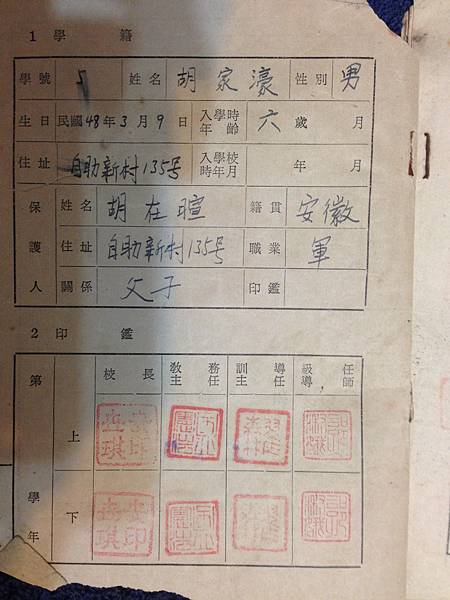 1 學 籍
學號 5 姓名 胡家濠 性別 男
生日 民國48年3月9日 入學時年齡 六歲 月
住址 自助新村135号 入學時校年月 年 月
保護人 姓名 胡在暄 籍貫 安徽
住址 自助新村135号 職業 軍
關係 父子 印鑑
2 印 鑑
第 學年 校長 教務主任 訓導主任 級任導師
上
下